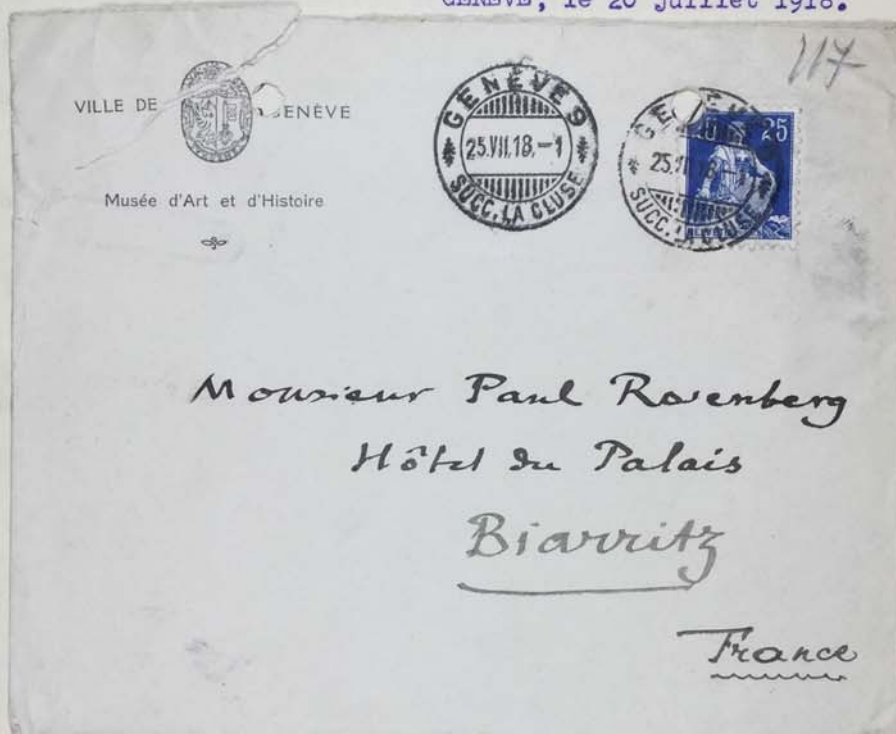 GENÈVE, le 20 juillet 1918.
117
VILLE DE GENÈVE
Musée d'Art et d'Histoire
GENÈVE 9
25.VII.18.-1
SUCC. LA CLUSE
25
SUCC. LA CLUSE
Monsieur Paul Rosenberg
Hôtel du Palais
Biarritz
France